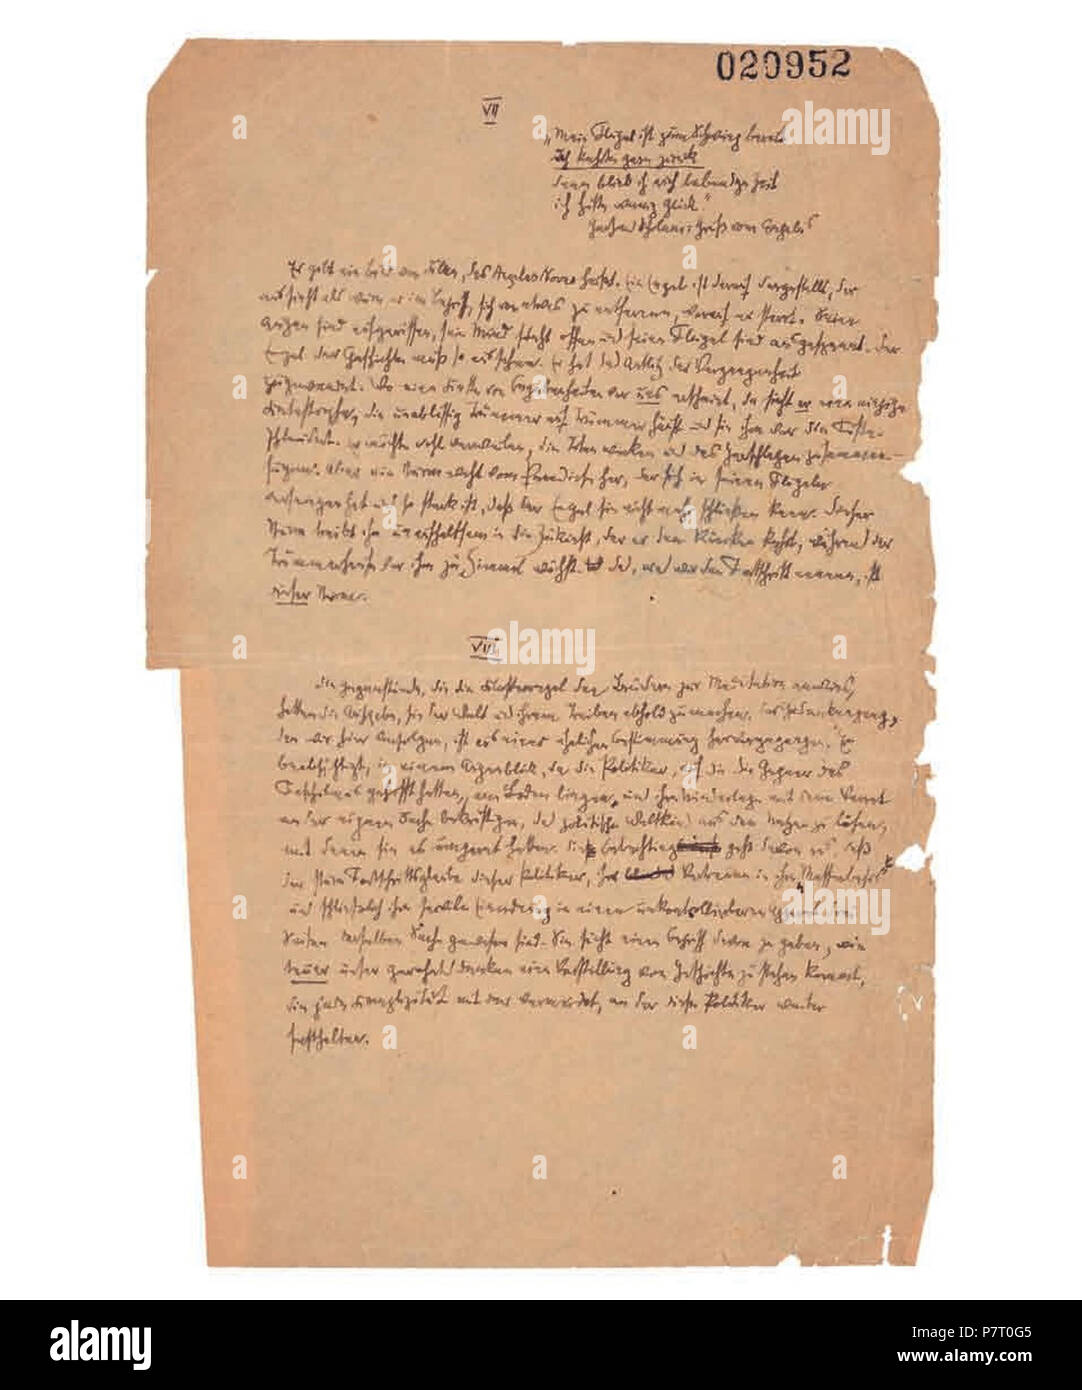 020952
VII
„Mein Flügel ist zum Schwung bereit
Ich kehrte gern zurück
denn blieb ich auch lebendge Zeit
ich hätte wenig Glück."
Gerhard Scholem: Gruß vom Angelus
Es gibt ein Bild von Klee, das Angelus Novus heißt. Ein Engel ist darauf dargestellt, der
aussieht als wäre er im Begriff, sich von etwas zu entfernen, worauf er starrt. Seine
Augen sind aufgerissen, sein Mund steht offen und seine Flügel sind ausgespannt. Der
Engel der Geschichte muß so aussehen. Er hat das Antlitz der Vergangenheit
zugewendet. Wo eine Kette von Begebenheiten vor uns erscheint, da sieht er eine einzige
Katastrophe, die unablässig Trümmer auf Trümmer häuft und sie ihm vor die Füße
schleudert. Er möchte wohl verweilen, die Toten wecken und das Zerschlagene zusammen-
fügen. Aber ein Sturm weht vom Paradiese her, der sich in seinen Flügeln
verfangen hat und so stark ist, daß der Engel sie nicht mehr schließen kann. Dieser
Sturm treibt ihn unaufhaltsam in die Zukunft, der er den Rücken kehrt, während der
Trümmerhaufen vor ihm zum Himmel wächst. Das, was wir den Fortschritt nennen, ist
dieser Sturm.
VIII
Die Gegenstände, die die Klosterregel den Brüdern zur Meditation anwies,
hatten die Aufgabe, sie der Welt und ihrem Treiben abhold zu machen. Der Gedankengang,
den wir hier verfolgen, ist aus einer ähnlichen Bestimmung hervorgegangen. Er
beabsichtigt, in einem Augenblick, da die Politiker, auf die die Gegner des
Faschismus gehofft hatten, am Boden liegen und ihre Niederlage mit dem Verrat
an der eigenen Sache bekräftigen, das politische Weltkind aus den Netzen zu lösen,
mit denen sie es umgarnt haben. Die Betrachtung geht davon aus, daß
der sture Fortschrittsglaube dieser Politiker, ihr Vertrauen in ihre „Massenbasis"
und schließlich ihre servile Einordnung in einen unkontrollierbaren Apparat drei
Seiten derselben Sache gewesen sind. Sie sucht einen Begriff davon zu geben, wie
teuer unser gewohntes Denken eine Vorstellung von Geschichte zu stehen kommt,
die jede Komplizität mit der vermeidet, an der diese Politiker weiter
festhalten.
alamy
alamy
alamy
alamy
Image ID: P7T0G5
www.alamy.com